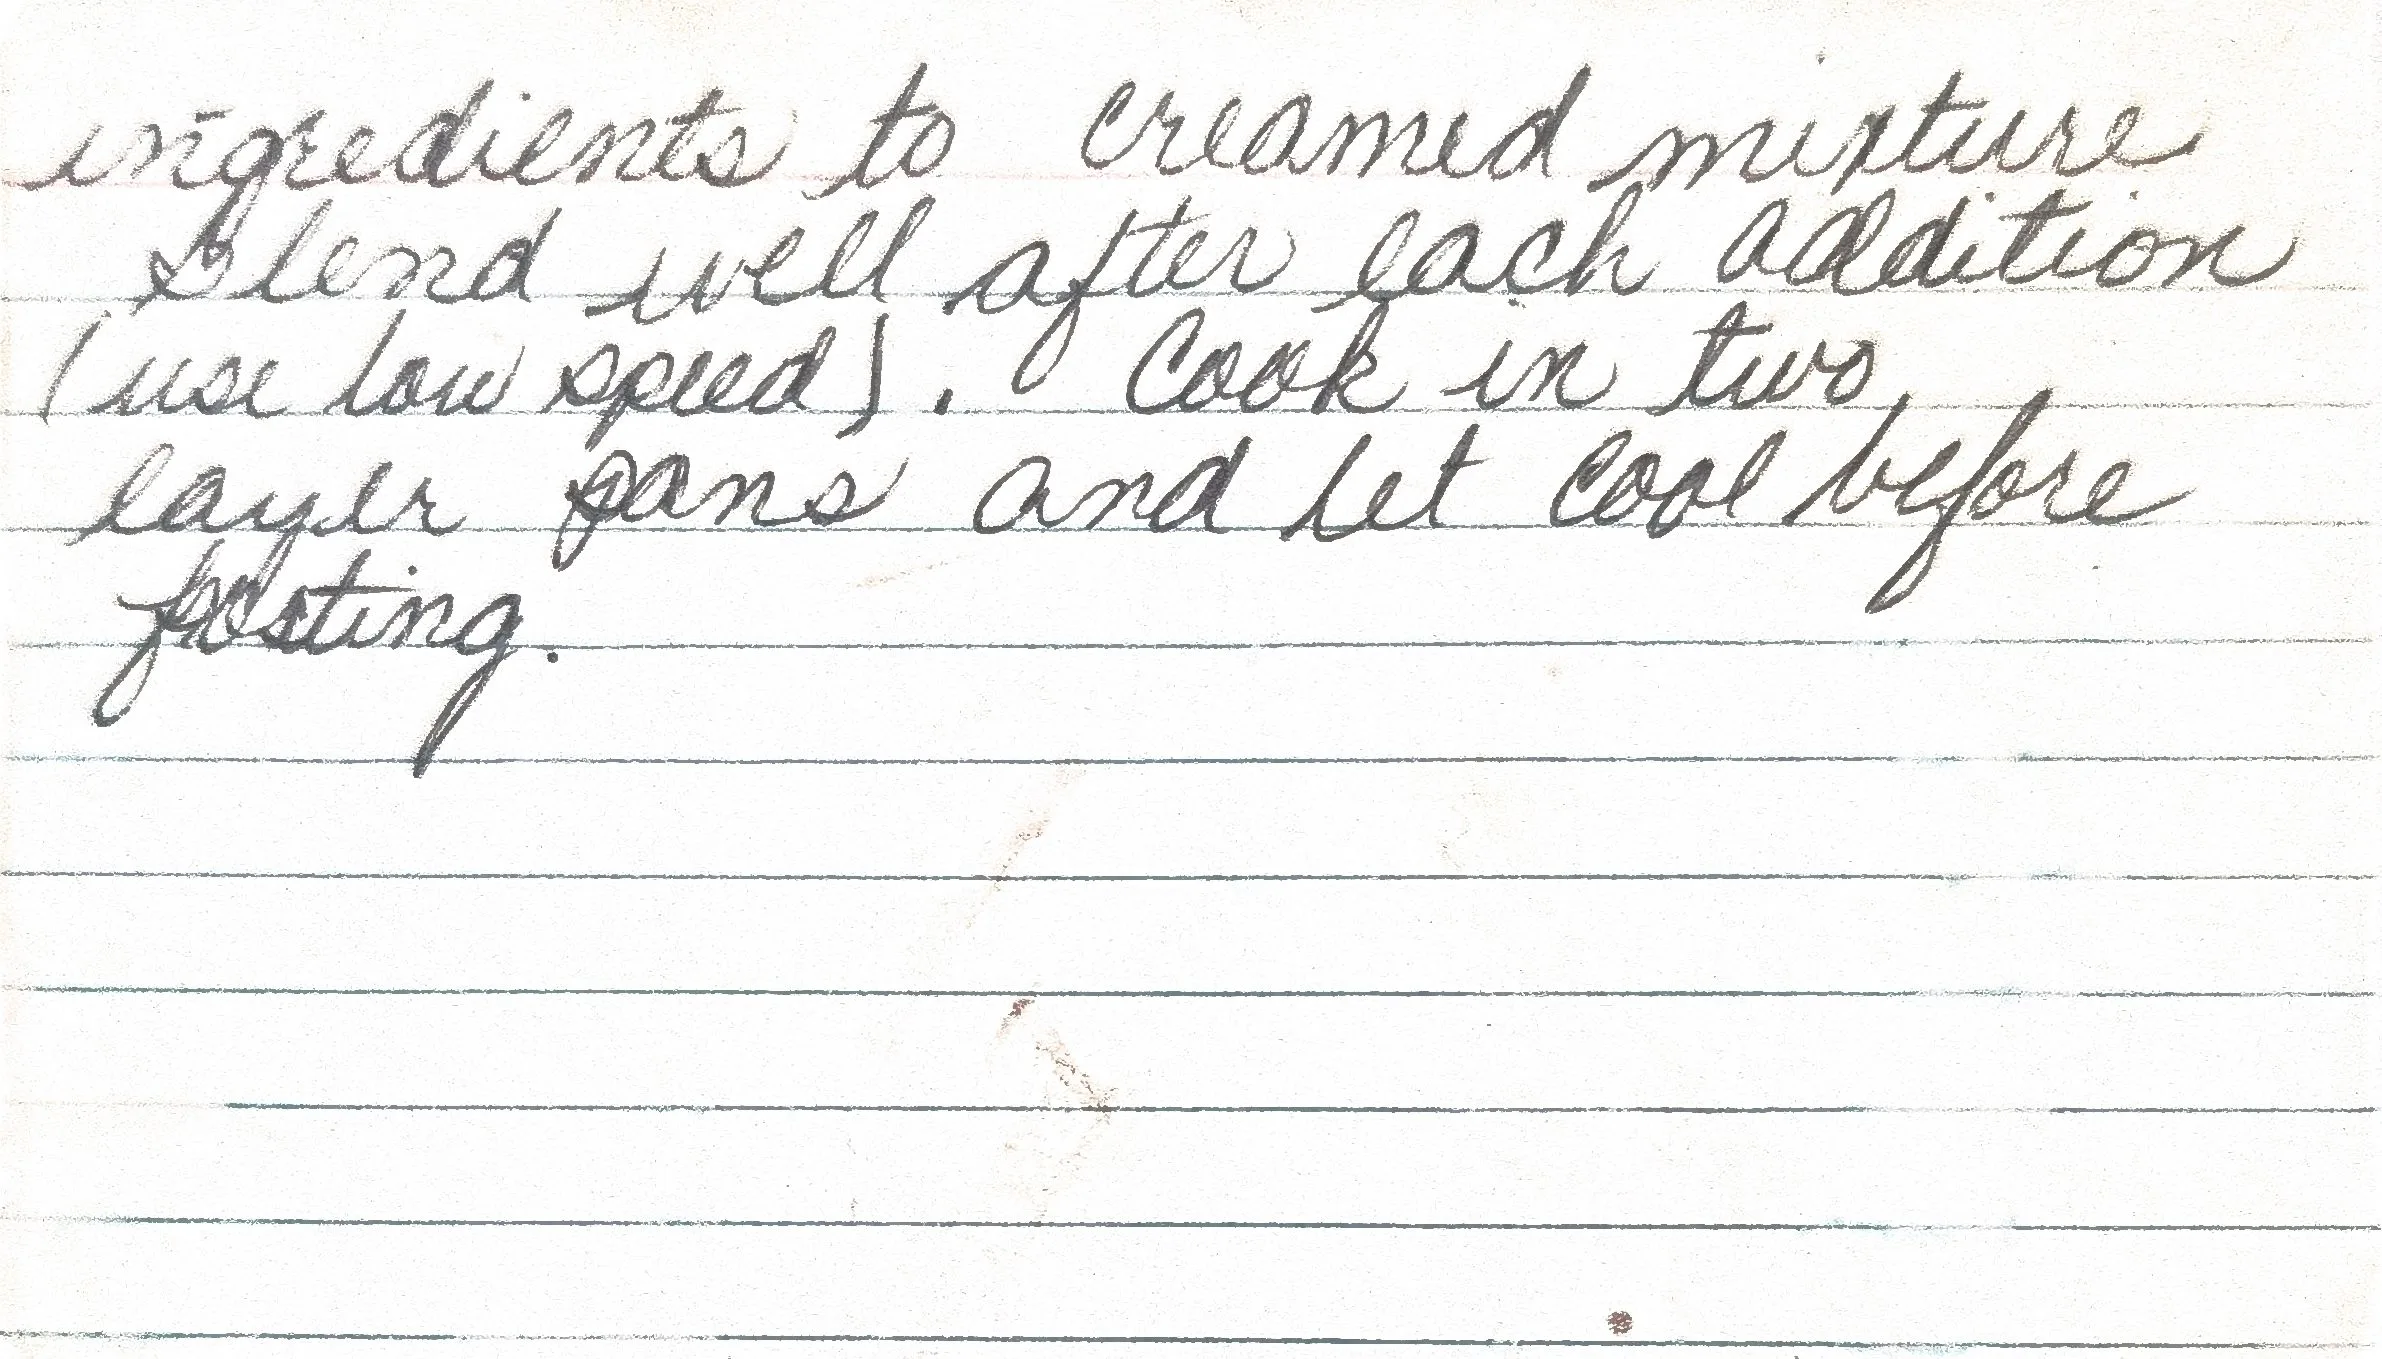 ingredients to creamed mixture
blend well after each addition
(use low speed). Cook in two
layer pans and let cool before
frosting.